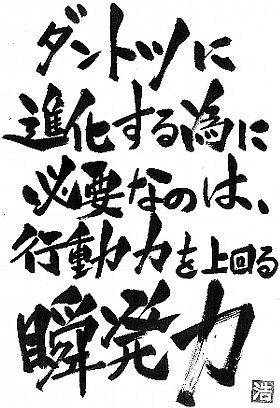 ダントツに
進化する為に
必要なのは、
行動力を上回る
瞬発力
浩